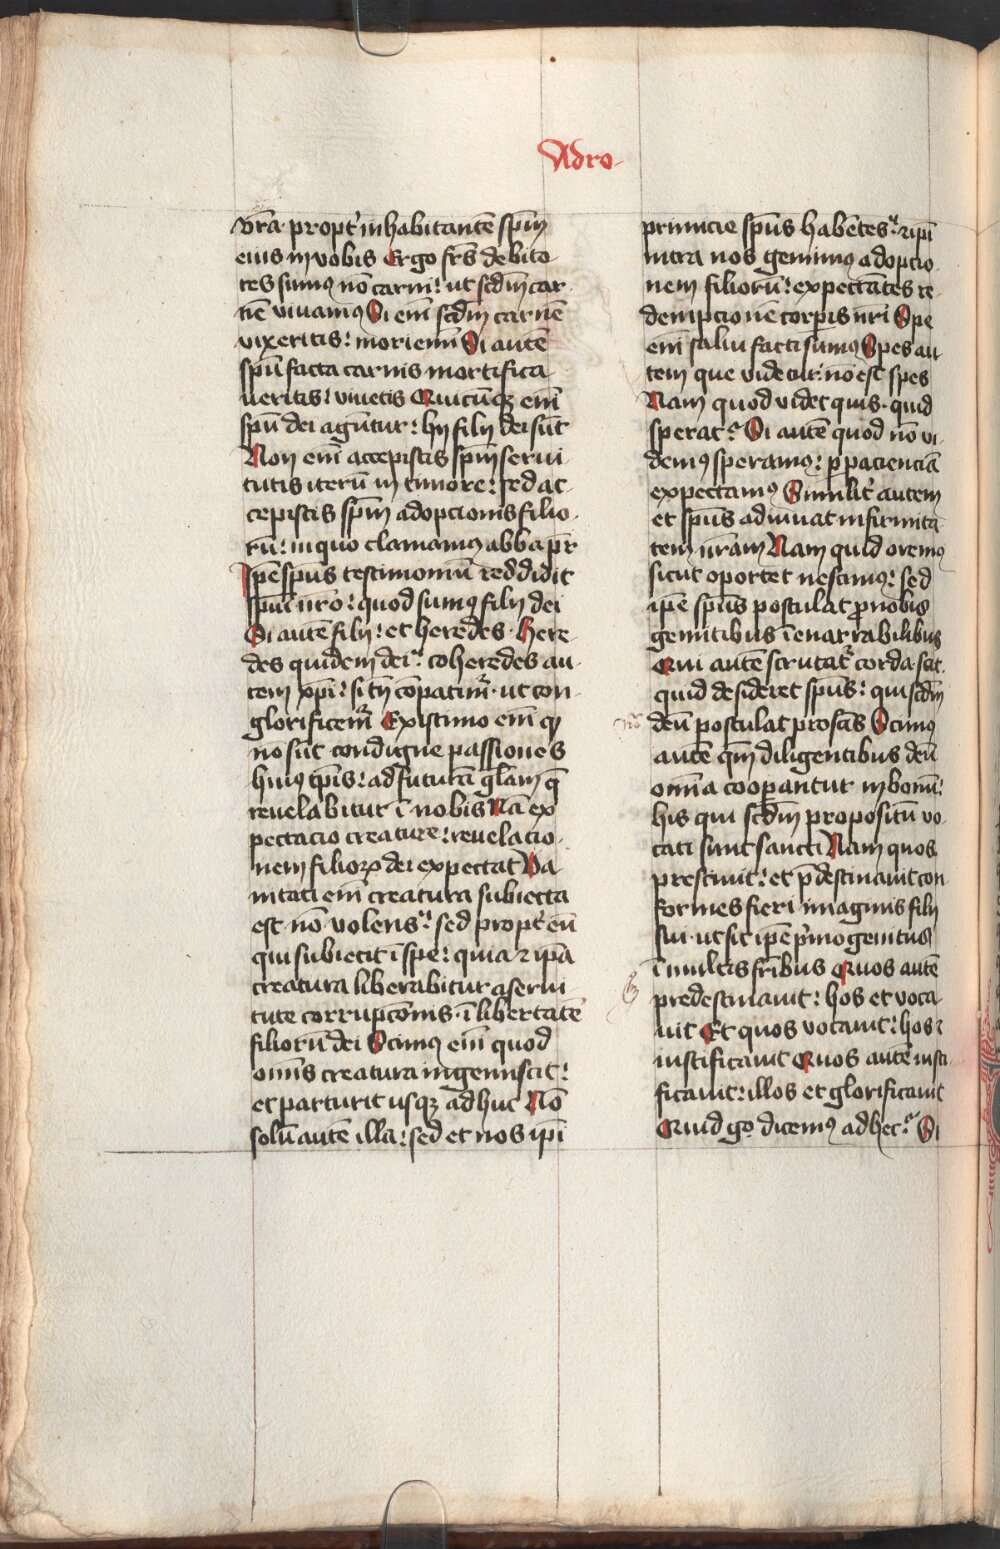 Adro
vr̄a· propt̕ inhabitantē sp̄m
eius in vobis Ergo fr̄s debito
res sumꝰ nō carni: ut scd̄m car
nē viuamꝰ Si em̄ scd̄m carnē
vixeritis: moriemī Si autē
spū facta carnis mortifica
ueritis: viuetis Quicūqꝫ em̄
spū dei agūtur: hij filij dei sūt
Non em̄ accepistis sp̄m serui-
tutis iterū in timore: sed ac-
cepistis sp̄m adopcionis filio-
rū: in quo clamamꝰ abba pr̄
Ip̄e sp̄us testimoniū reddidit
spūi nr̄o: quod sumꝰ filij dei
Si autē filij: et heredes· Here-
des quidem dei: coheredes au-
tem xp̄i: si tn̄ cōpatimr̄· ut con-
glorificemr̄ Existimo em̄ qꝫ
no sūt condigne passiones
huiꝰ tp̄is: ad futurā gl̄am q̄
reuelabitur ī nobis Nā ex
pectacio creature: reuelacio-
nem filioꝝ dei expectat Va
nitati em̄ creatura subiecta
est nō volens: sed propt̕ eū
qui subiecit ī spe: quia ⁊ ip̄a
creatura liberabitur a serui-
tute corrupcōnis· ī libertatē
filiorū dei Scimꝰ em̄ quod
om̄is creatura ingemiscit:
et parturit usqꝫ adhuc Nō
solū autē illa: sed et nos ip̄i
primicie sp̄us habētes: ⁊ ip̄i
intra nos gemimꝰ adopcio-
nem filiorū: expectātes re-
dempcionē corp̄is nr̄i Spe
em̄ salui facti sumꝰ Spes au
tem que videtur: nō est spes
Nam quod videt quis· quid
sperat: Si autē quod nō vi-
demꝰ speramꝰ: ꝑ paciencia
expectamꝰ Similit̕ autem
et sp̄us adiuuat infirmita
tem nr̄am Nam quid oremꝰ
sicut oportet nescimꝰ: sed
ip̄e sp̄us postulat ꝓ nobis
gemitibus īenarrabilibus
Qui autē scrutat̕ corda scit·
quid desideret sp̄us: qui scd̄m
deū postulat pro sc̄is Scimꝰ
autē qm̄ diligentibus deū
om̄ia cooperantur in bonū:
his qui scd̄m propositū vo-
cati sunt sancti Nam quos
presciuit: et p̄destinauit con
formes fieri imaginis filij
sui· ut sit ip̄e p̄mogenitus
ī multis fr̄ibus Quos autē
predestinauit: hos et voca
uit Et quos vocauit: hos ⁊
iustificauit Quos autē iusti
ficauit: illos et glorificauit
Quid g̊ dicemꝰ ad hec: Si